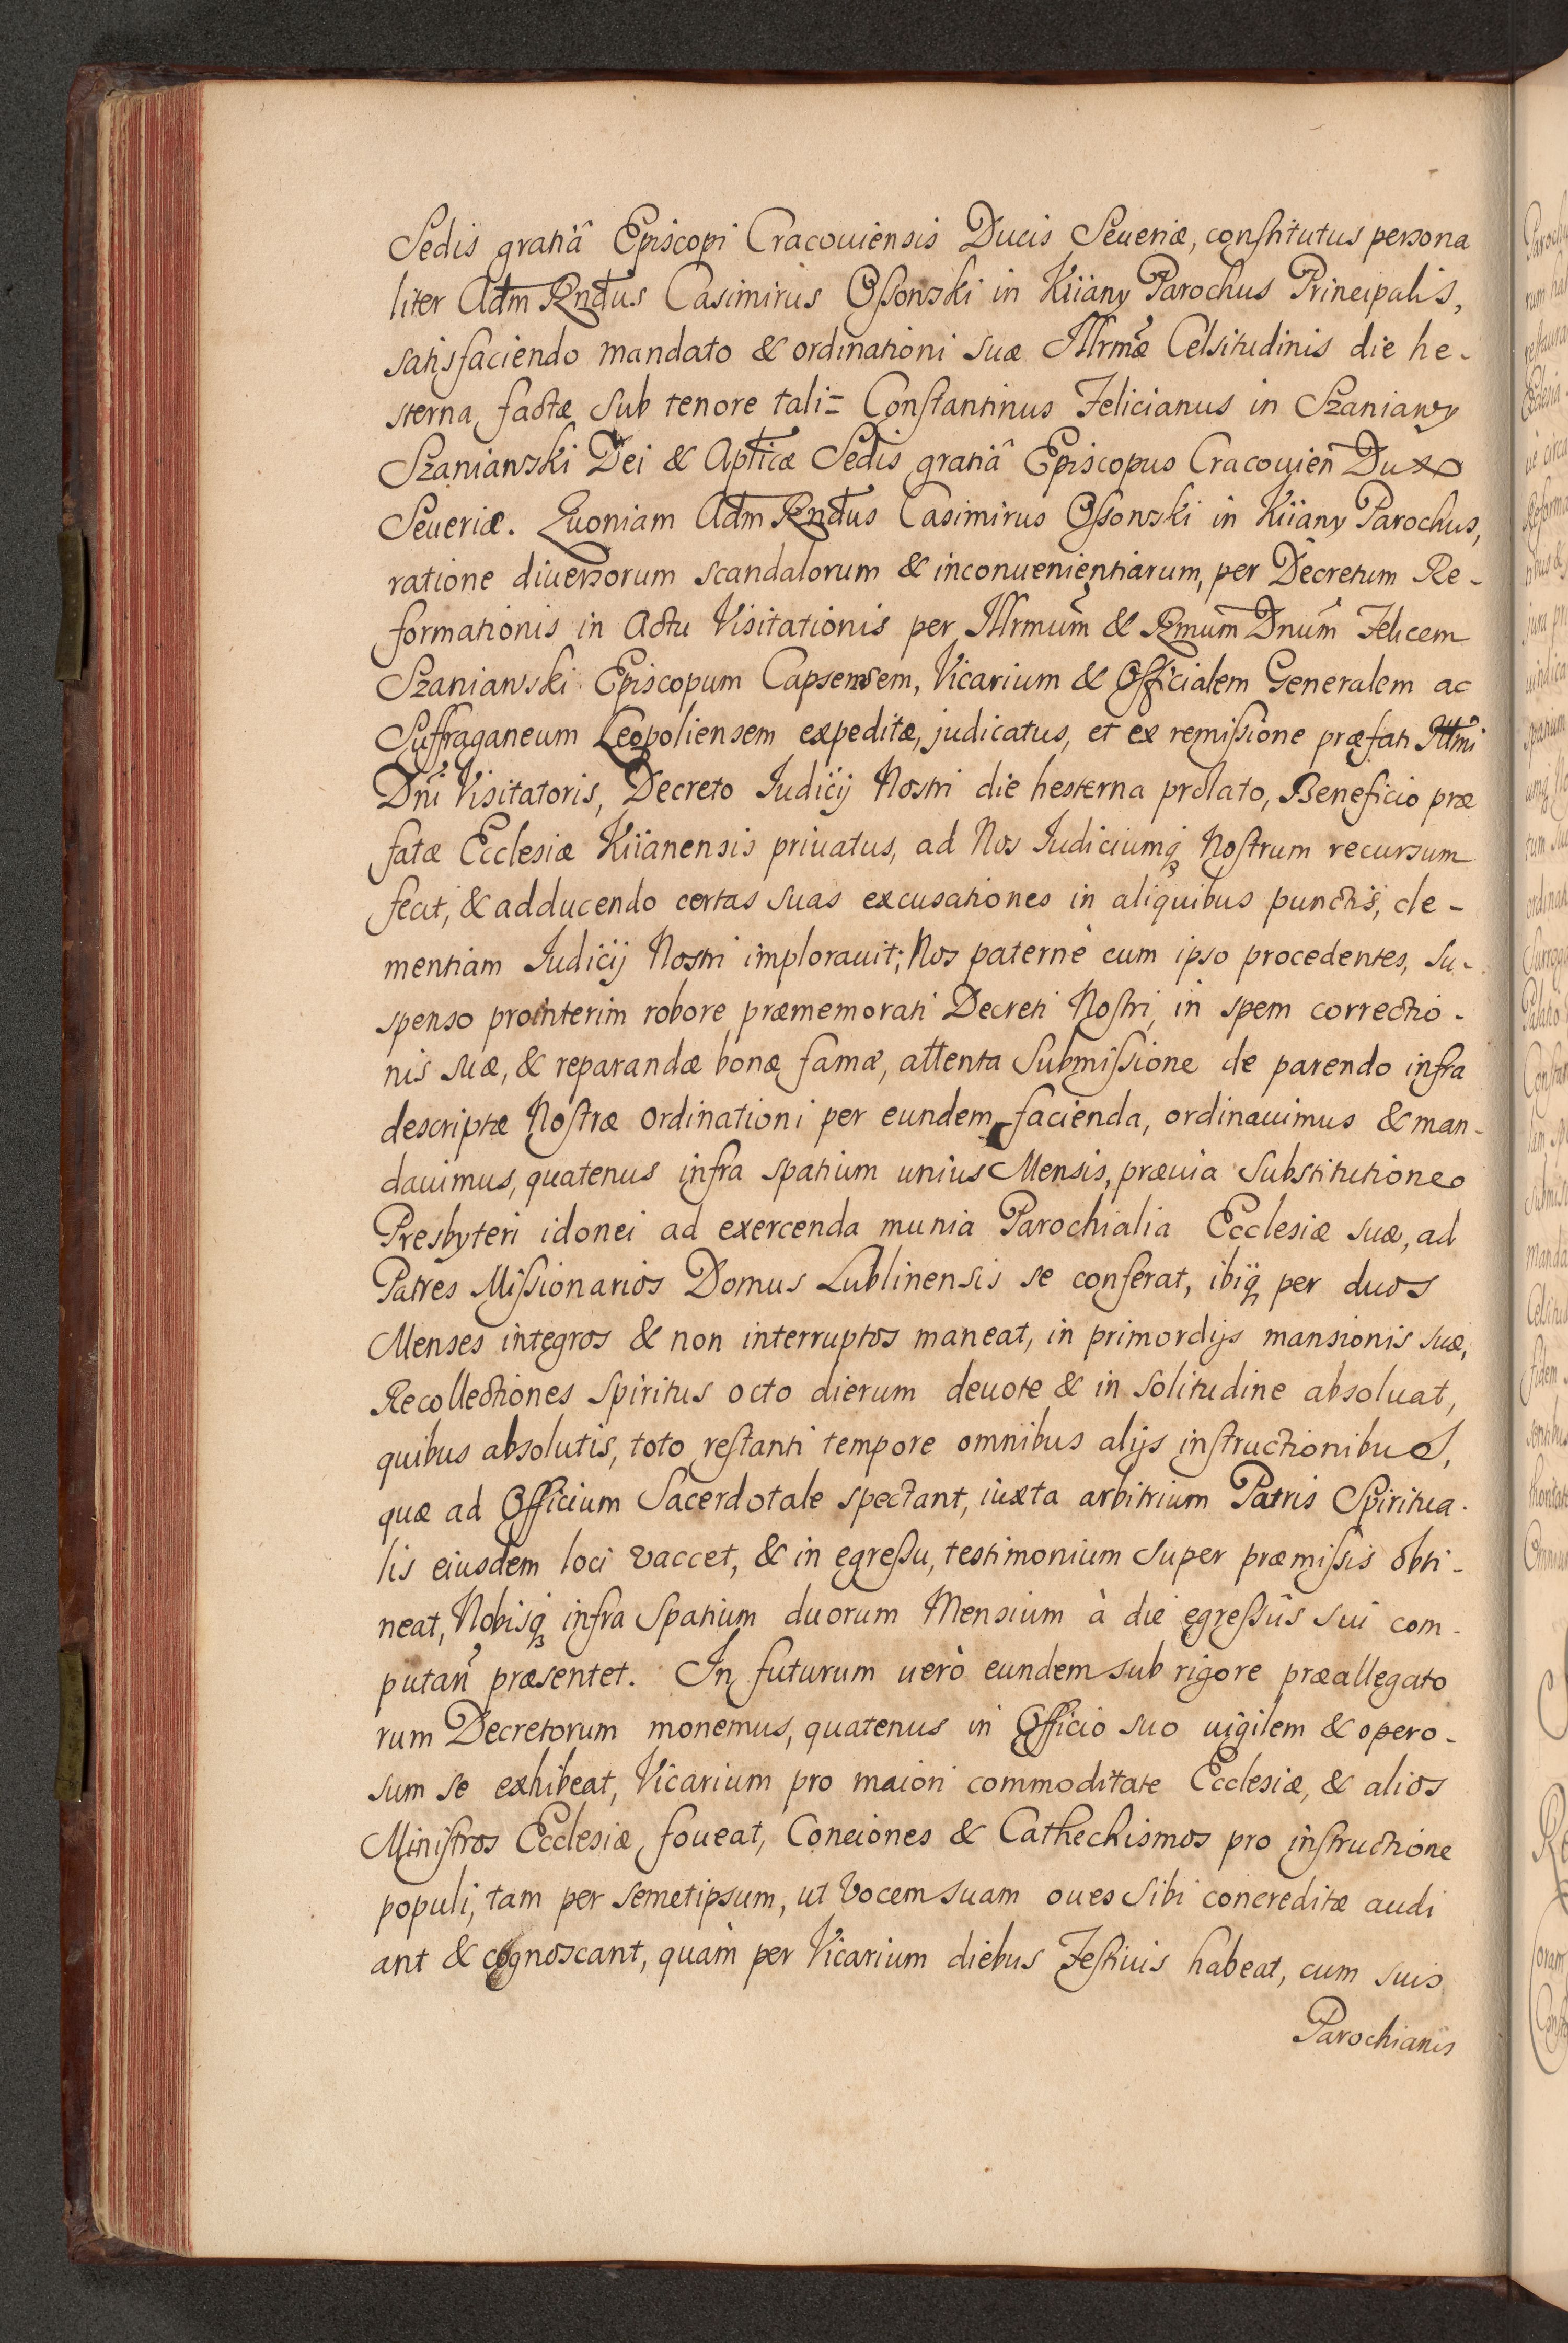 Sedis gratiâ Episcopi Cracouiensis Ducis Seueriæ, constitutus persona
liter Adm Rndus Casimirus Ossowski in Kiiany Parochus Principalis,
satisfaciendo mandato & ordinationi suæ Illrmæ Celsitudinis die he-
sterna factæ sub tenore tali= Constantinus Felicianus in Szaniawy
Szaniawski Dei & Aplicæ Sedis gratiâ Episcopus Cracouien Dux
Seueriæ. Quoniam Adm Rndus Casimirus Ossowski in Kiiany Parochus,
ratione diuersorum scandalorum & inconuenientiarum, per Decretum Re-
formationis in Actu Visitationis per Illrmum & Rmum Dnum Felicem
Szaniawski Episcopum Capsensem, Vicarium & Officialem Generalem ac
Suffraganeum Leopoliensem expeditæ, judicatus, et ex remissione præfati Illmi
Dni Visitatoris, Decreto Iudicij Nostri die hesterna prolato, Beneficio præ
fatæ Ecclesiæ Kiianensis priuatus, ad Nos Iudiciumq Nostrum recursum
fecit, & adducendo certas suas excusationes in aliquibus punctis, cle-
mentiam Iudicij Nostri implorauit; Nos paternè cum ipso procedentes, su-
spenso prointerim robore præmemorati Decreti Nostri, in spem correctio-
nis suæ, & reparandæ bonæ famæ, attenta Submissione de parendo infra
descriptæ Nostræ Ordinationi per eundem facienda, ordinauimus & man-
dauimus, quatenus infra spatium unius Mensis, præuia Substitutione
Presbyteri idonei ad exercenda munia Parochialia Ecclesiæ suæ, ad
Patres Missionarios Domus Lublinensis se conferat, ibiq per duos
Menses integros & non interruptos maneat, in primordijs mansionis suæ,
Recollectiones Spiritus octo dierum deuote & in solitudine absoluat,
quibus absolutis, toto restanti tempore omnibus alijs instructionibus,
quæ ad Officium Sacerdotale spectant, iuxta arbitrium Patris Spiritua-
lis eiusdem loci vaccet, & in egressu, testimonium super præmissis obti-
neat, Nobisq infra Spatium duorum Mensium à die egressûs sui com-
putan præsentet. In futurum uerò eundem sub rigore præallegato
rum Decretorum monemus, quatenus in Officio suo uigilem & opero-
sum se exhibeat, Vicarium pro maiori commoditate Ecclesiæ, & alios
Ministros Ecclesiæ foueat, Conciones & Cathechismos pro instructione
populi, tam per semetipsum, ut Vocem suam oues sibi concreditæ audi
ant & cognoscant, quàm per Vicarium diebus Festiuis habeat, cum suis
Parochianis